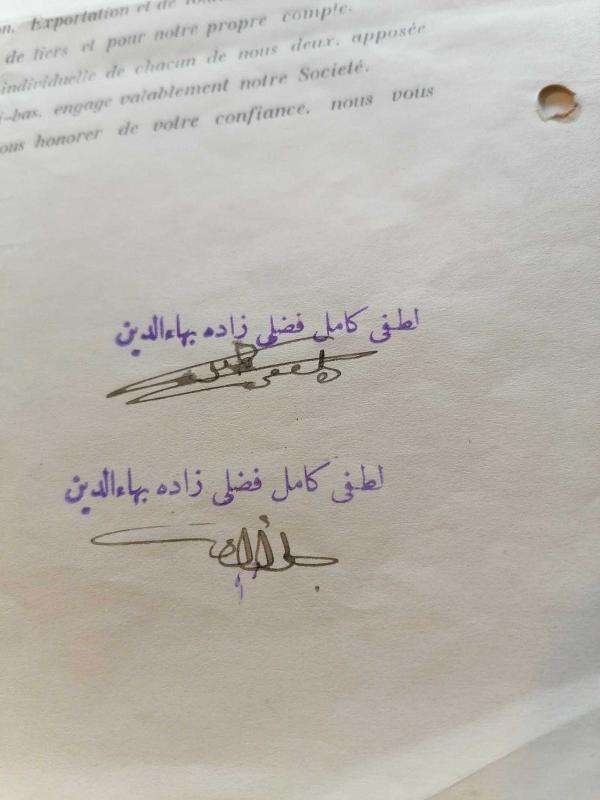 Exportation et de
de tiers et pour notre propre compte.
individuelle de chacun de nous deux, apposée
i-bas, engage valablement notre Societé.
ous honorer de votre confiance, nous vous
لطفى كامل فضلى زاده بهاءالدين
لطفى كامل فضلى زاده بهاءالدين